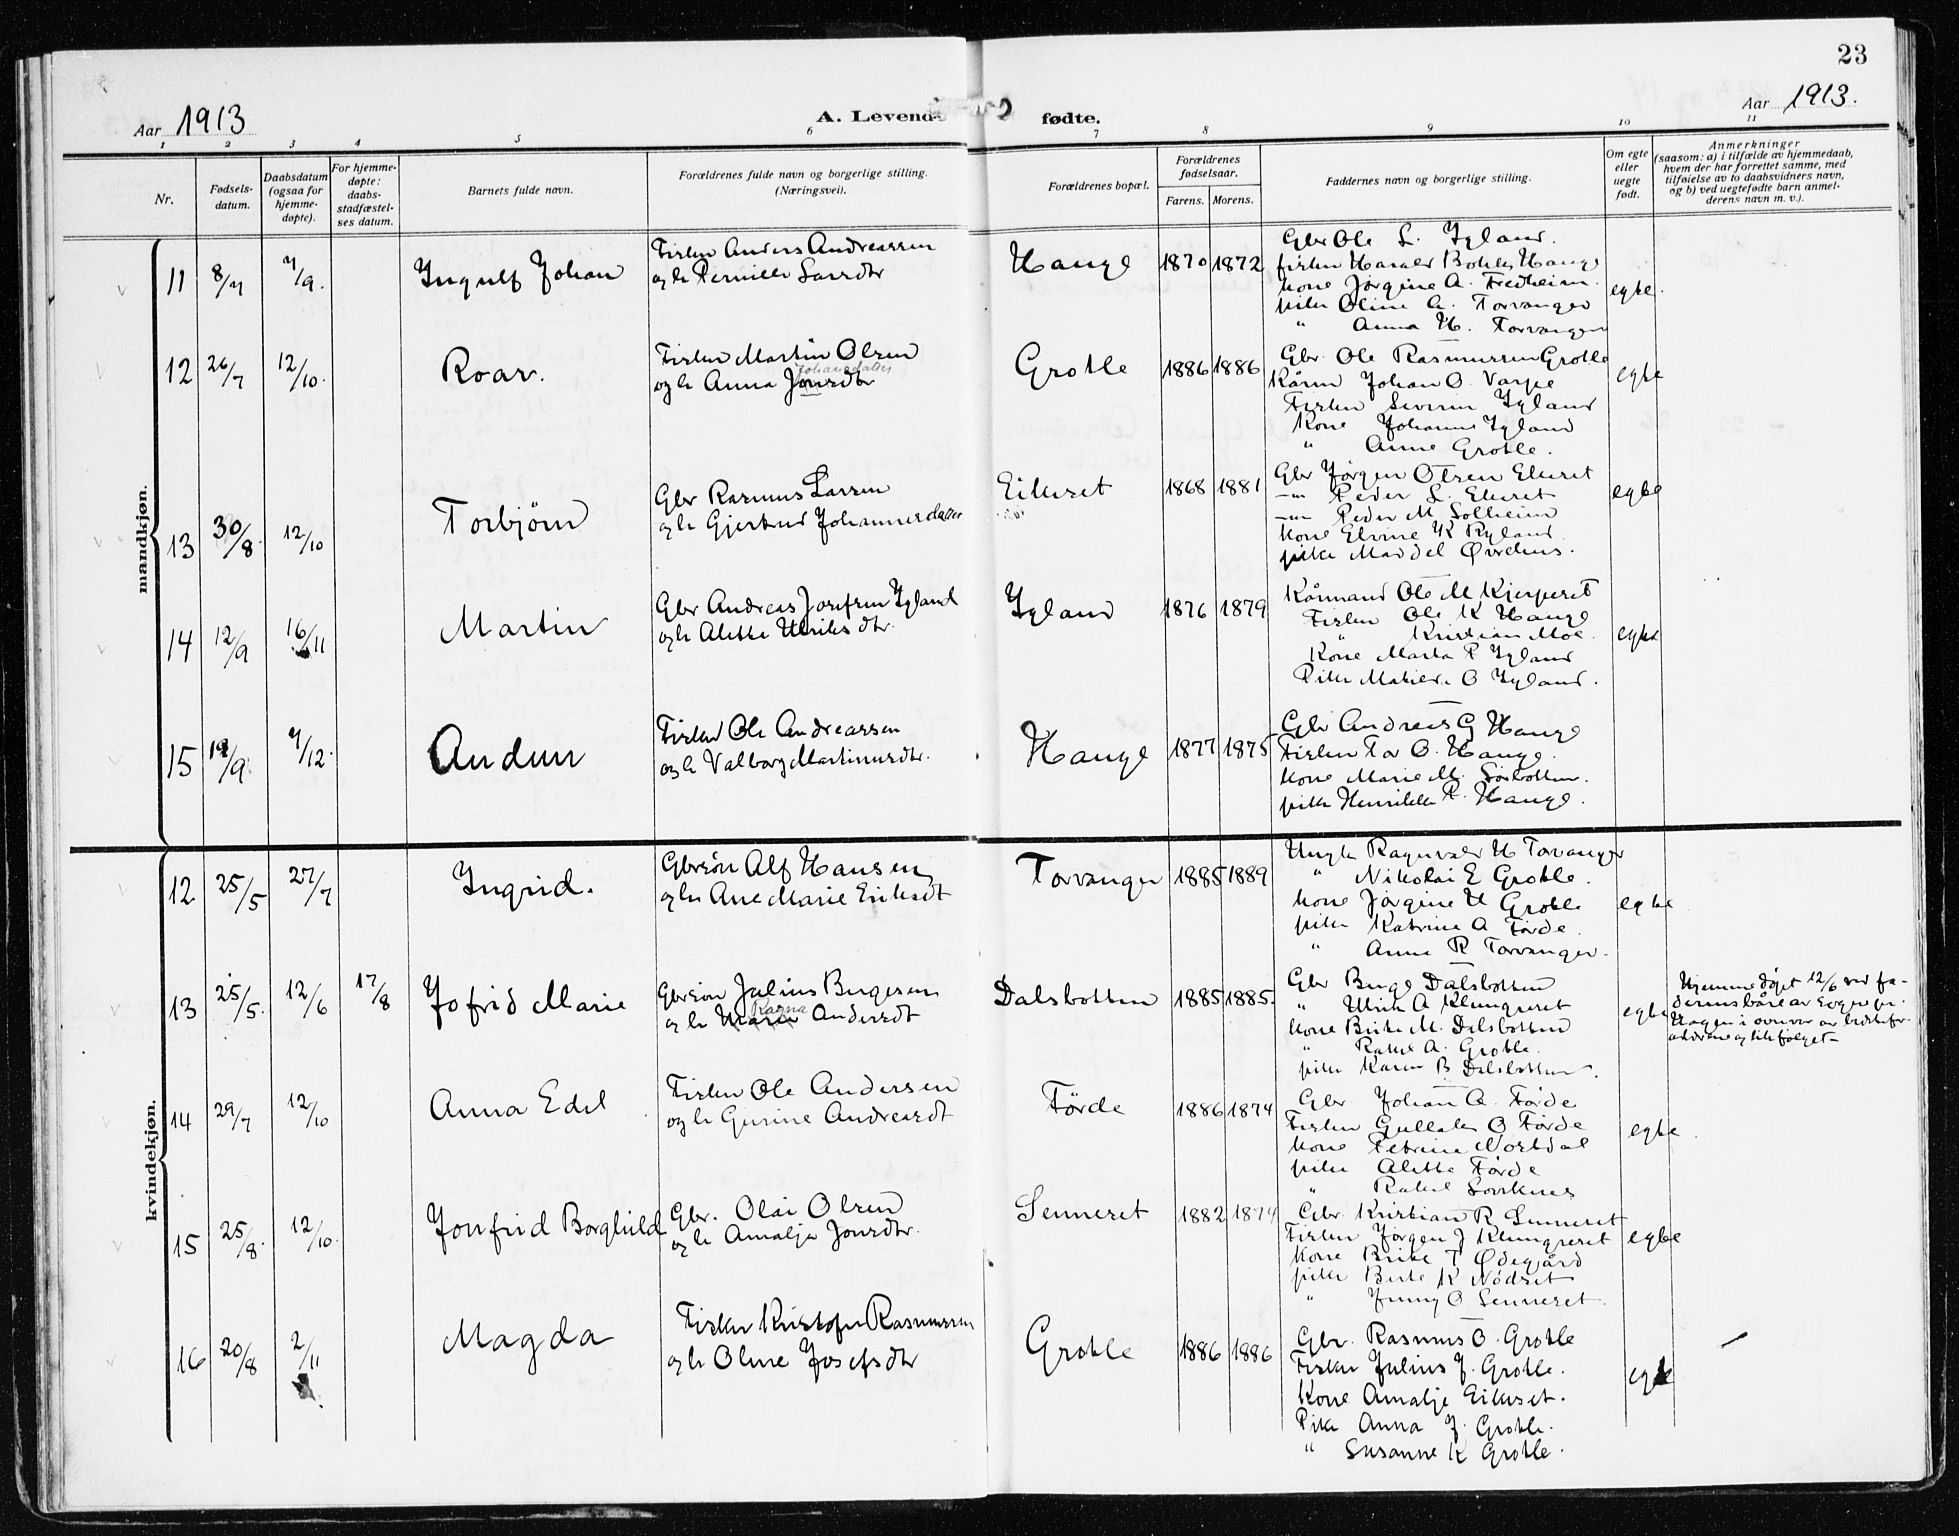 23
Aar 1913
A. Levende fødte.
Aar 1913.
1 2 3 4 5 6 7 8 9 10 11
Nr.
Fødsels-
datum.
Daabsdatum
(ogsaa for
hjemme-
døpte).
For hjemme-
døpte:
daabs-
stadfæstel-
ses datum.
Barnets fulde navn.
Forældrenes fulde navn og borgerlige stilling.
(Næringsvei).
Forældrenes bopæl.
Forældrenes
fødselsaar.
Farens. Morens.
Faddernes navn og borgerlige stilling.
Om egte
eller
uegte
født.
Anmerkninger
(saasom: a) i tilfælde av hjemmedaab,
hvem der har forrettet samme, med
tilføielse av to daabsvidners navn,
og b) ved uegtefødte barn anmel-
derens navn m. v.).
mandkjøn.
11 8/7 7/9. Ingulf Johan
Fisker Anders Andreassen
og h Pernille Larsdtr
Hauge 1870 1872
Gbr Ole L. Igland.
fisker Harald Hauge
kone Jørgine A. Fredheim.
pike Oline A. Torvanger
" Anna H. Torvanger
egte.
12 26/7 12/10. Roar.
Fisker Martin Olsen
Johansdatter
og h Anna Jonsdtr
Grotle 1886 1886
Gbr. Ole Rasmussen Grotle
Kårm Johan O. Varpe
Fisker Severin Igland
Kone Johanne Igland
" Anne Grotle.
egte
13 30/8. 12/10 Torbjørn
Gbr Rasmus Larsen
og h Gjertrud Johannesdatter
Eikeset 1868 1881
Gbr Jørgen Olsen Ekeset
Peder L. Ekeset
Peder M Solheim
kone Elvine K Ryland.
pike Maddel Øvrehus.
egte
14 12/9 16/11 Martin
Gbr Andreas Josefsen Igland
og h Alette Ulriksdtr.
Igland 1876 1879
Kårmand Ole M Kjerpeset
Fisker Ole K Hauge
" Kristian Moe.
Kone Marta R Igland
Pike Matilde O Igland.
egte
15 19/9. 7/12. Audun
Fisker Ole Andreassen
og h Valborg Martinusdtr.
Hauge 1877 1875
Gbr Andreas G Hauge
Fisker Tor O. Hauge.
kone Marie M. Sørbotten.
pike Henrikke R. Hauge.
kvindekjøn.
12 25/5 27/7 Ingrid.
Gbrsøn Alf Hansen
og h Ane Marie Eriksdt
Torvanger 1885 1889
Ungk Ragnvald H Torvanger
" Nikolai E Grotle.
kone Jørgine H Grotle
pike Katrine A Førde.
" Anne R Torvanger.
egte
13 25/5. 12/6 17/8 Jofrid Marie
Gbrsøn Julius Bugesen
Ragna
og h Marie Andersdt
Dalsbotten 1885 1885.
Gbr Buge Dalsbotten
" Ulrik A Klungreset
kone Birte M. Dalsbotten
" Rakel A. Grotle.
pike Karen B Dalsbotten.
egte
Hjemmedøpt 12/6 ved fa-
derens båre av Sogne pr.
Hagen i overvær av bedstefor-
ældrene og likfølget
14 29/7 12/10 Anna Edel
Fisker Ole Andersen
og h Gurine Andreasdt
Førde 1886 1874
Gbr. Johan A. Førde
Fisker Gullak O Førde
kone Petrine Nordal
pike Alette Førde
" Rakel
egte.
15 25/8. 12/10. Jonfrid Borghild
Gbr. Olai Olsen
og h Amalja Jonsdtr.
Senneset 1882 1874
Gbr Kristian R Senneset
Fisker Jørgen J Klungreset
Kone Brite T Ødegård
pike Berte K Nødset
" Jenny O Senneset.
egte
16 20/8 2/11 Magda
Fisker Kristofer Rasmussen
og h Oline Josefsdtr
Grotle 1886 1886
Gbr. Rasmus O. Grotle
Fisker Julius J. Grotle.
Kone Amalje Eikeset.
Pike Anna J. Grotle.
" Susanne K Grotle.
egte